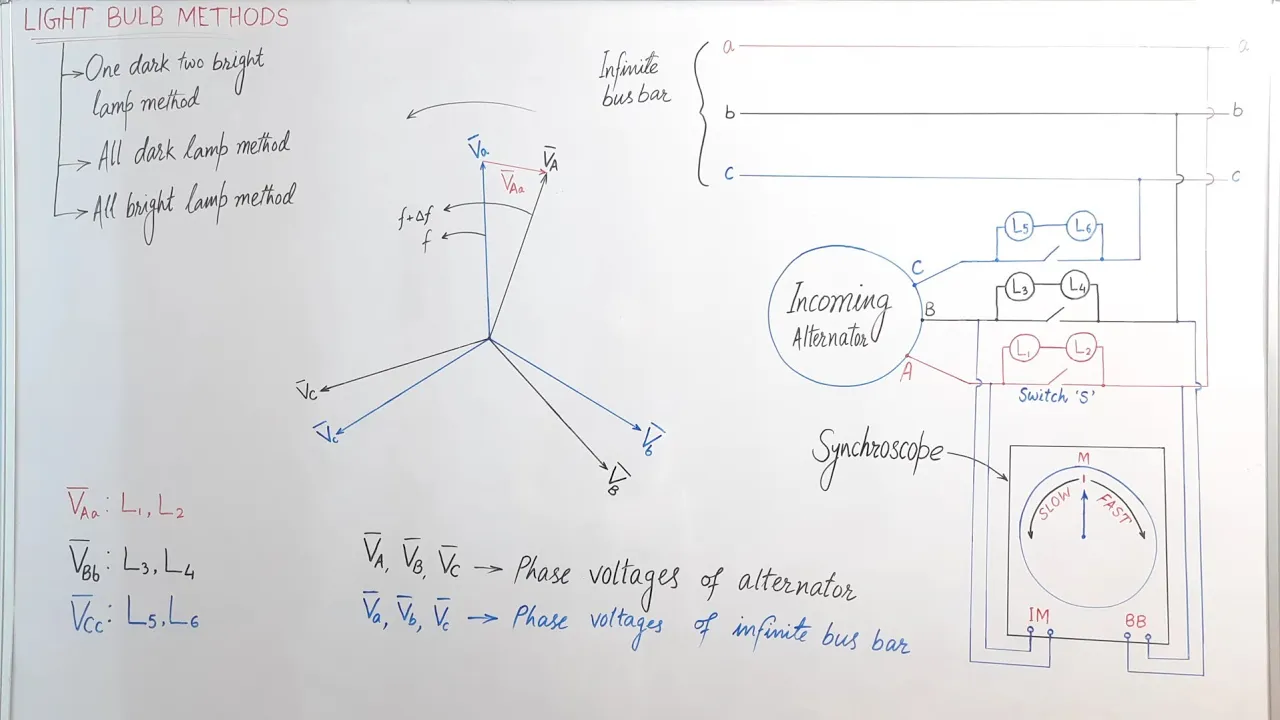 LIGHT BULB METHODS
One dark two bright
lamp method
All dark lamp method
All bright lamp method
Infinite
bus bar
a
a
b
b
c
c
V̅a
V̅A
V̅Aa
f+Δf
f
V̅C
V̅c
V̅b
V̅B
L5
L6
C
L3
L4
B
Incoming
Alternator
L1
L2
A
Switch 'S'
Synchroscope
M
SLOW
FAST
IM
BB
V̅Aa : L1, L2
V̅Bb : L3, L4
V̅Cc : L5, L6
V̅A, V̅B, V̅C → Phase voltages of alternator
V̅a, V̅b, V̅c → Phase voltages of infinite bus bar